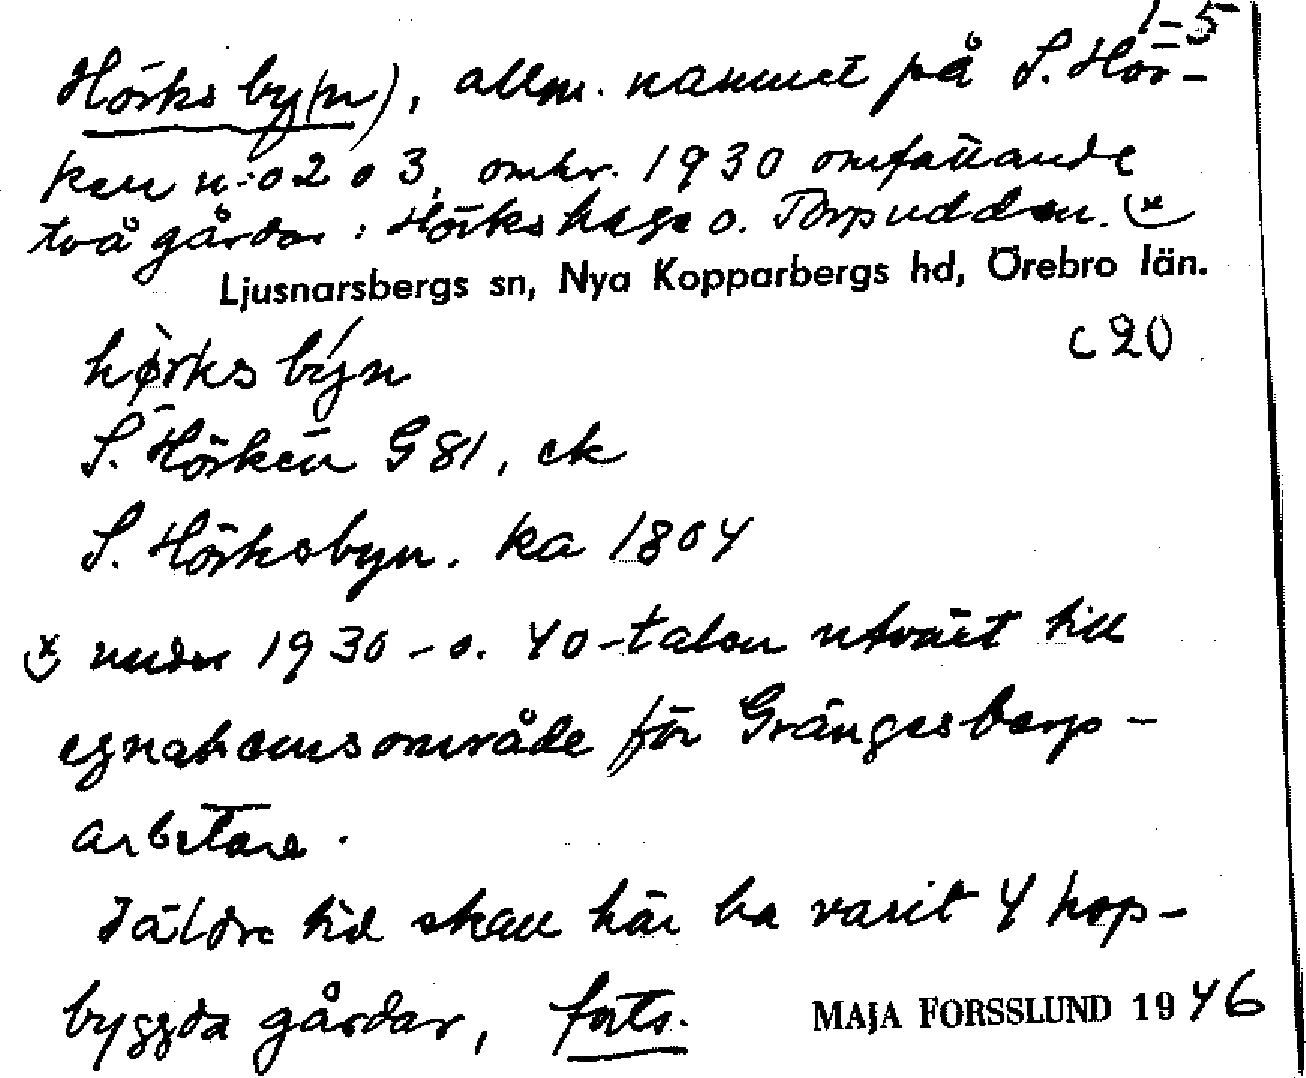 1-5
Hörksby(n), allm. namnet på S. Hör-
ken n:o 2 o 3, omkr. 1930 omfattande
två gårdar: Hörkshage o. Torpudden. *
Ljusnarsbergs sn, Nya Kopparbergs hd, Örebro län.
hørks býn c 20
S. Hörken G 81, ek
S. Hörksbyn. ka 1804
* under 1930- o. 40-talen utväxt till
egnahemsområde för Grängesberg-
arbetare.
I äldre tid skall här ha varit 4 hop-
byggda gårdar, forts. MAJA FORSSLUND 1946